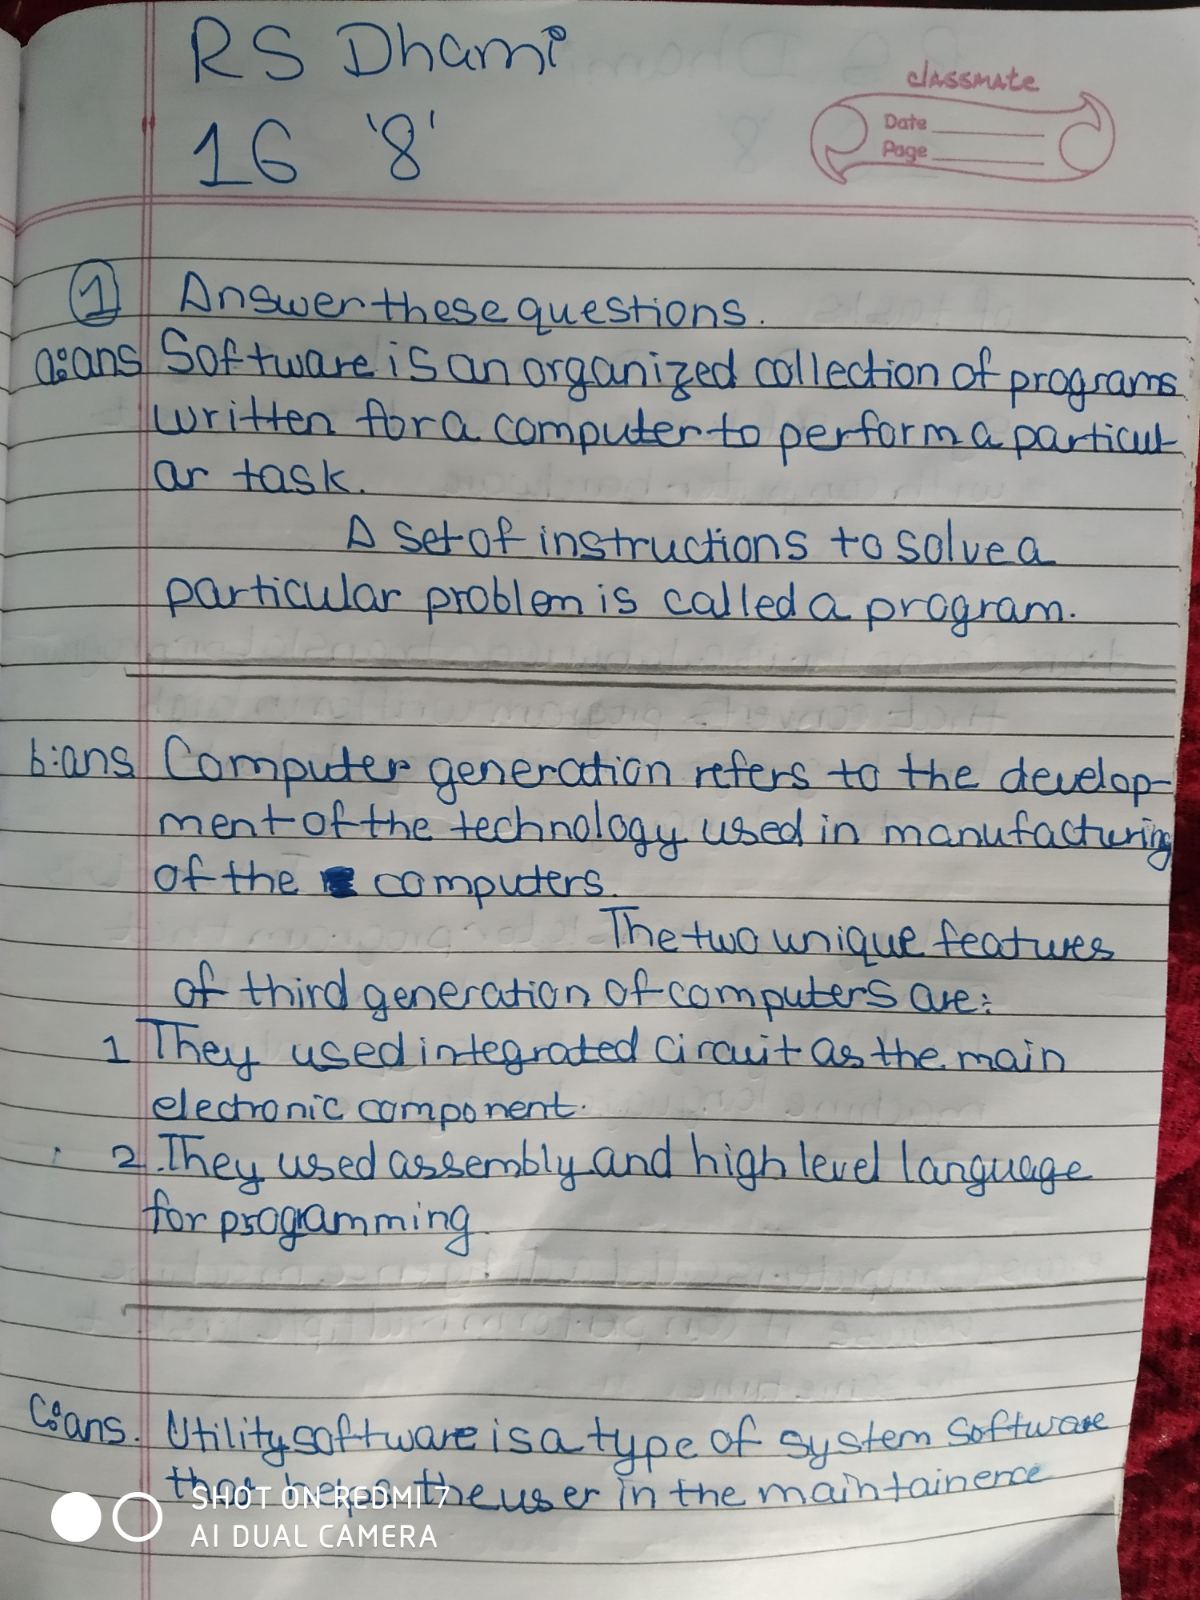 RS Dhami
16 '8'
classmate
Date
Page
1 Answer these questions.
a:ans Software is an organized collection of programs
written for a computer to perform a particul
ar task.
A set of instructions to solve a
particular problem is called a program.
b:ans Computer generation refers to the develop-
ment of the technology used in manufacturing
of the computers.
The two unique features
of third generation of computers are:
1 They used integrated circuit as the main
electronic component.
2. They used assembly and high level language
for progamming
C:ans. Utility software is a type of system software
that helps the user in the maintainence
SHOT ON REDMI 7
AI DUAL CAMERA